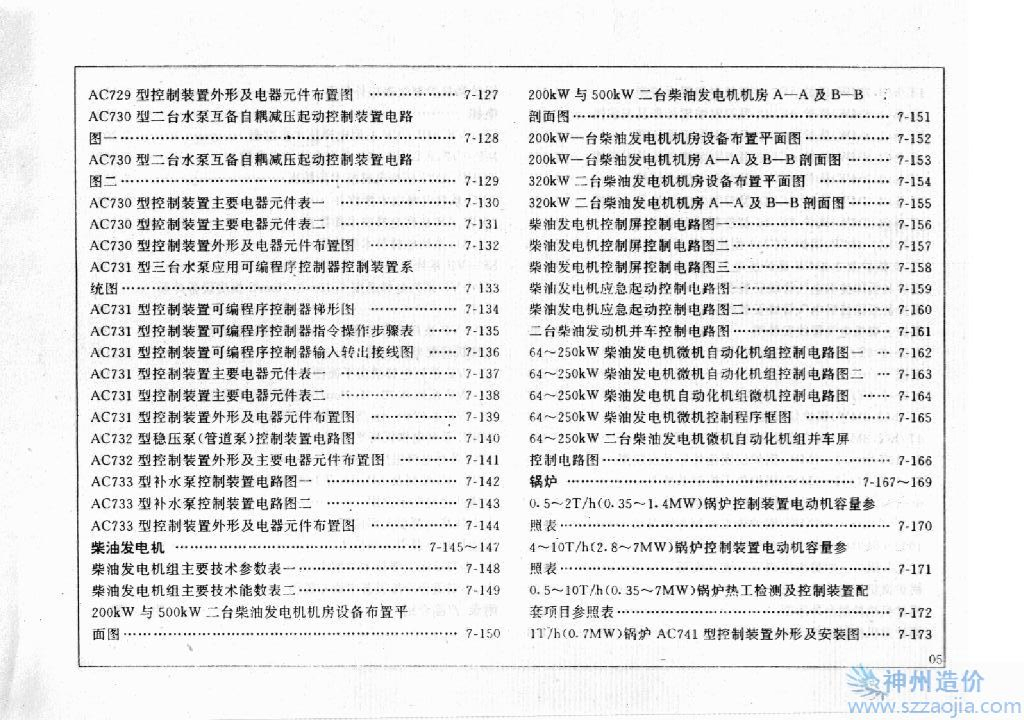 AC729 型控制装置外形及电器元件布置图 ………… 7-127
AC730 型二台水泵互备自耦减压起动控制装置电路
图一 ………… 7-128
AC730 型二台水泵互备自耦减压起动控制装置电路
图二 ………… 7-129
AC730 型控制装置主要电器元件表一 ………… 7-130
AC730 型控制装置主要电器元件表二 ………… 7-131
AC730 型控制装置外形及电器元件布置图 ………… 7-132
AC731 型三台水泵应用可编程序控制器控制装置系
统图 ………… 7-133
AC731 型控制装置可编程序控制器梯形图 ………… 7-134
AC731 型控制装置可编程序控制器指令操作步骤表 ………… 7-135
AC731 型控制装置可编程序控制器输入转出接线图 ………… 7-136
AC731 型控制装置主要电器元件表一 ………… 7-137
AC731 型控制装置主要电器元件表二 ………… 7-138
AC731 型控制装置外形及电器元件布置图 ………… 7-139
AC732 型稳压泵(管道泵)控制装置电路图 ………… 7-140
AC732 型控制装置外形及主要电器元件布置图 ………… 7-141
AC733 型补水泵控制装置电路图一 ………… 7-142
AC733 型补水泵控制装置电路图二 ………… 7-143
AC733 型控制装置外形及电器元件布置图 ………… 7-144
柴油发电机 ………… 7-145～147
柴油发电机组主要技术参数表一 ………… 7-148
柴油发电机组主要技术能数表二 ………… 7-149
200kW 与 500kW 二台柴油发电机机房设备布置平
面图 ………… 7-150
200kW 与 500kW 二台柴油发电机机房 A—A 及 B—B
剖面图 ………… 7-151
200kW 一台柴油发电机机房设备布置平面图 ………… 7-152
200kW 一台柴油发电机机房 A—A 及 B—B 剖面图 ………… 7-153
320kW 二台柴油发电机机房设备布置平面图 ………… 7-154
320kW 二台柴油发电机机房 A—A 及 B—B 剖面图 ………… 7-155
柴油发电机控制屏控制电路图一 ………… 7-156
柴油发电机控制屏控制电路图二 ………… 7-157
柴油发电机控制屏控制电路图三 ………… 7-158
柴油发电机应急起动控制电路图一 ………… 7-159
柴油发电机应急起动控制电路图二 ………… 7-160
二台柴油发动机并车控制电路图 ………… 7-161
64～250kW 柴油发电机微机自动化机组控制电路图一 … 7-162
64～250kW 柴油发电机微机自动化机组控制电路图二 … 7-163
64～250kW 柴油发电机自动化机组微机控制电路图 …… 7-164
64～250kW 柴油发电机微机控制程序框图 ………… 7-165
64～250kW 二台柴油发电机微机自动化机组并车屏
控制电路图 ………… 7-166
锅炉 ………… 7-167～169
0.5～2T/h(0.35～1.4MW)锅炉控制装置电动机容量参
照表 ………… 7-170
4～10T/h(2.8～7MW)锅炉控制装置电动机容量参
照表 ………… 7-171
0.5～10T/h(0.35～7MW)锅炉热工检测及控制装置配
套项目参照表 ………… 7-172
1T/h(0.7MW)锅炉 AC741 型控制装置外形及安装图 …… 7-173
05
神州造价
www.szzaojia.com